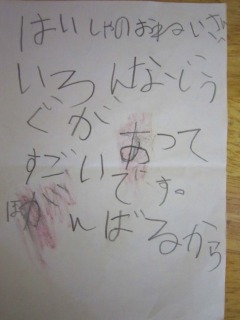 はいしゃのおねいさん
いろんなじう
ぐが あって
すごいです。
ぼがんばるから